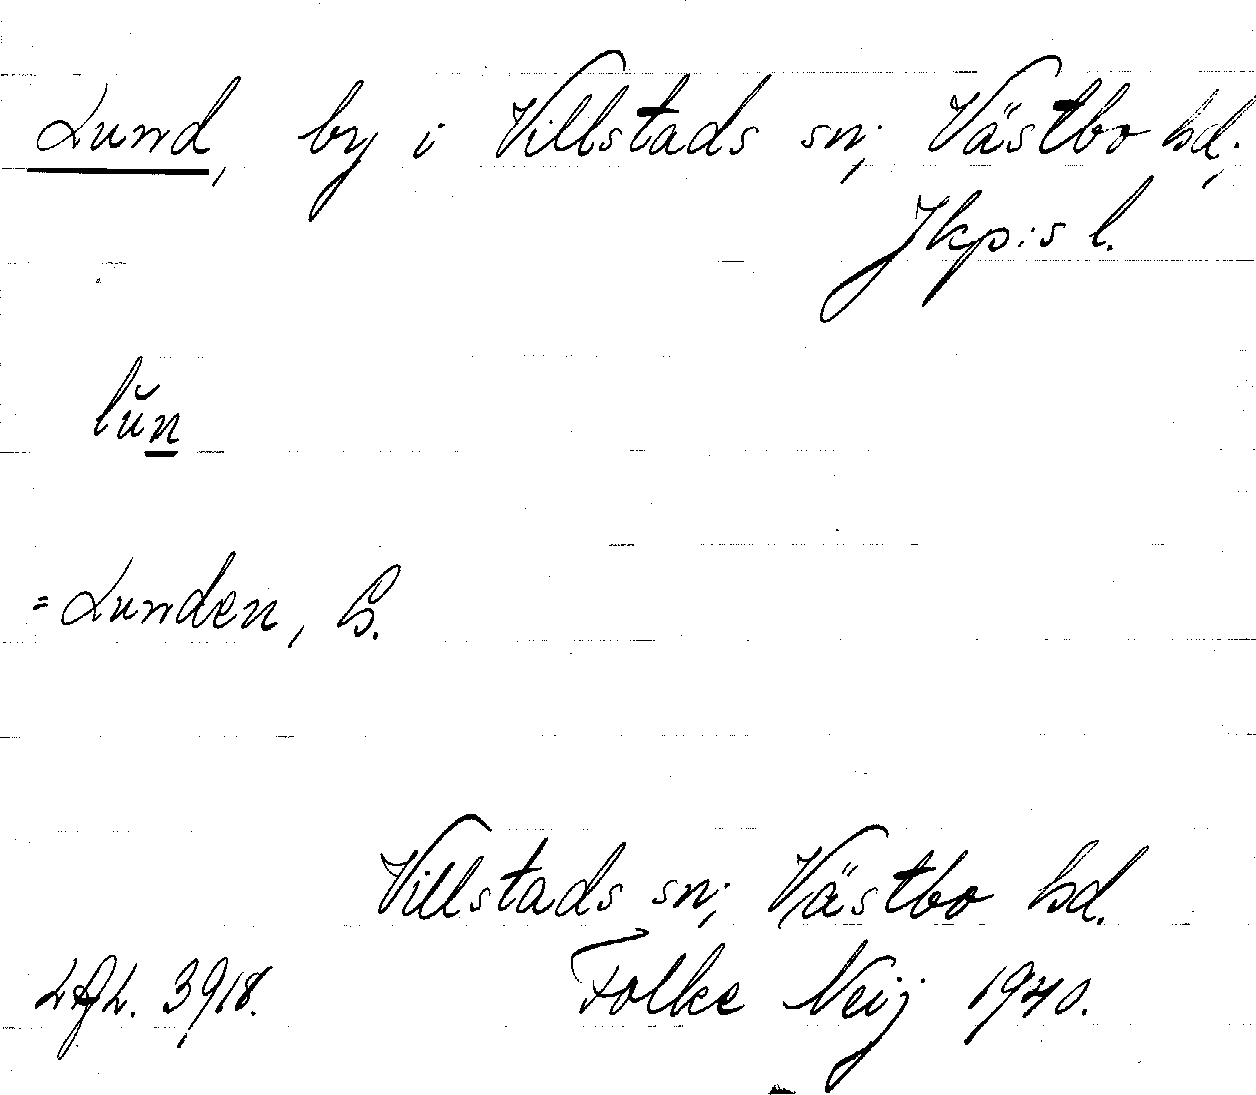 Lund, by i Villstads sn; Västbo hd;
Jkp:s l.
lŭn
= Lunden, G.
Villstads sn; Västbo hd.
3918. Folke Neij 1940.